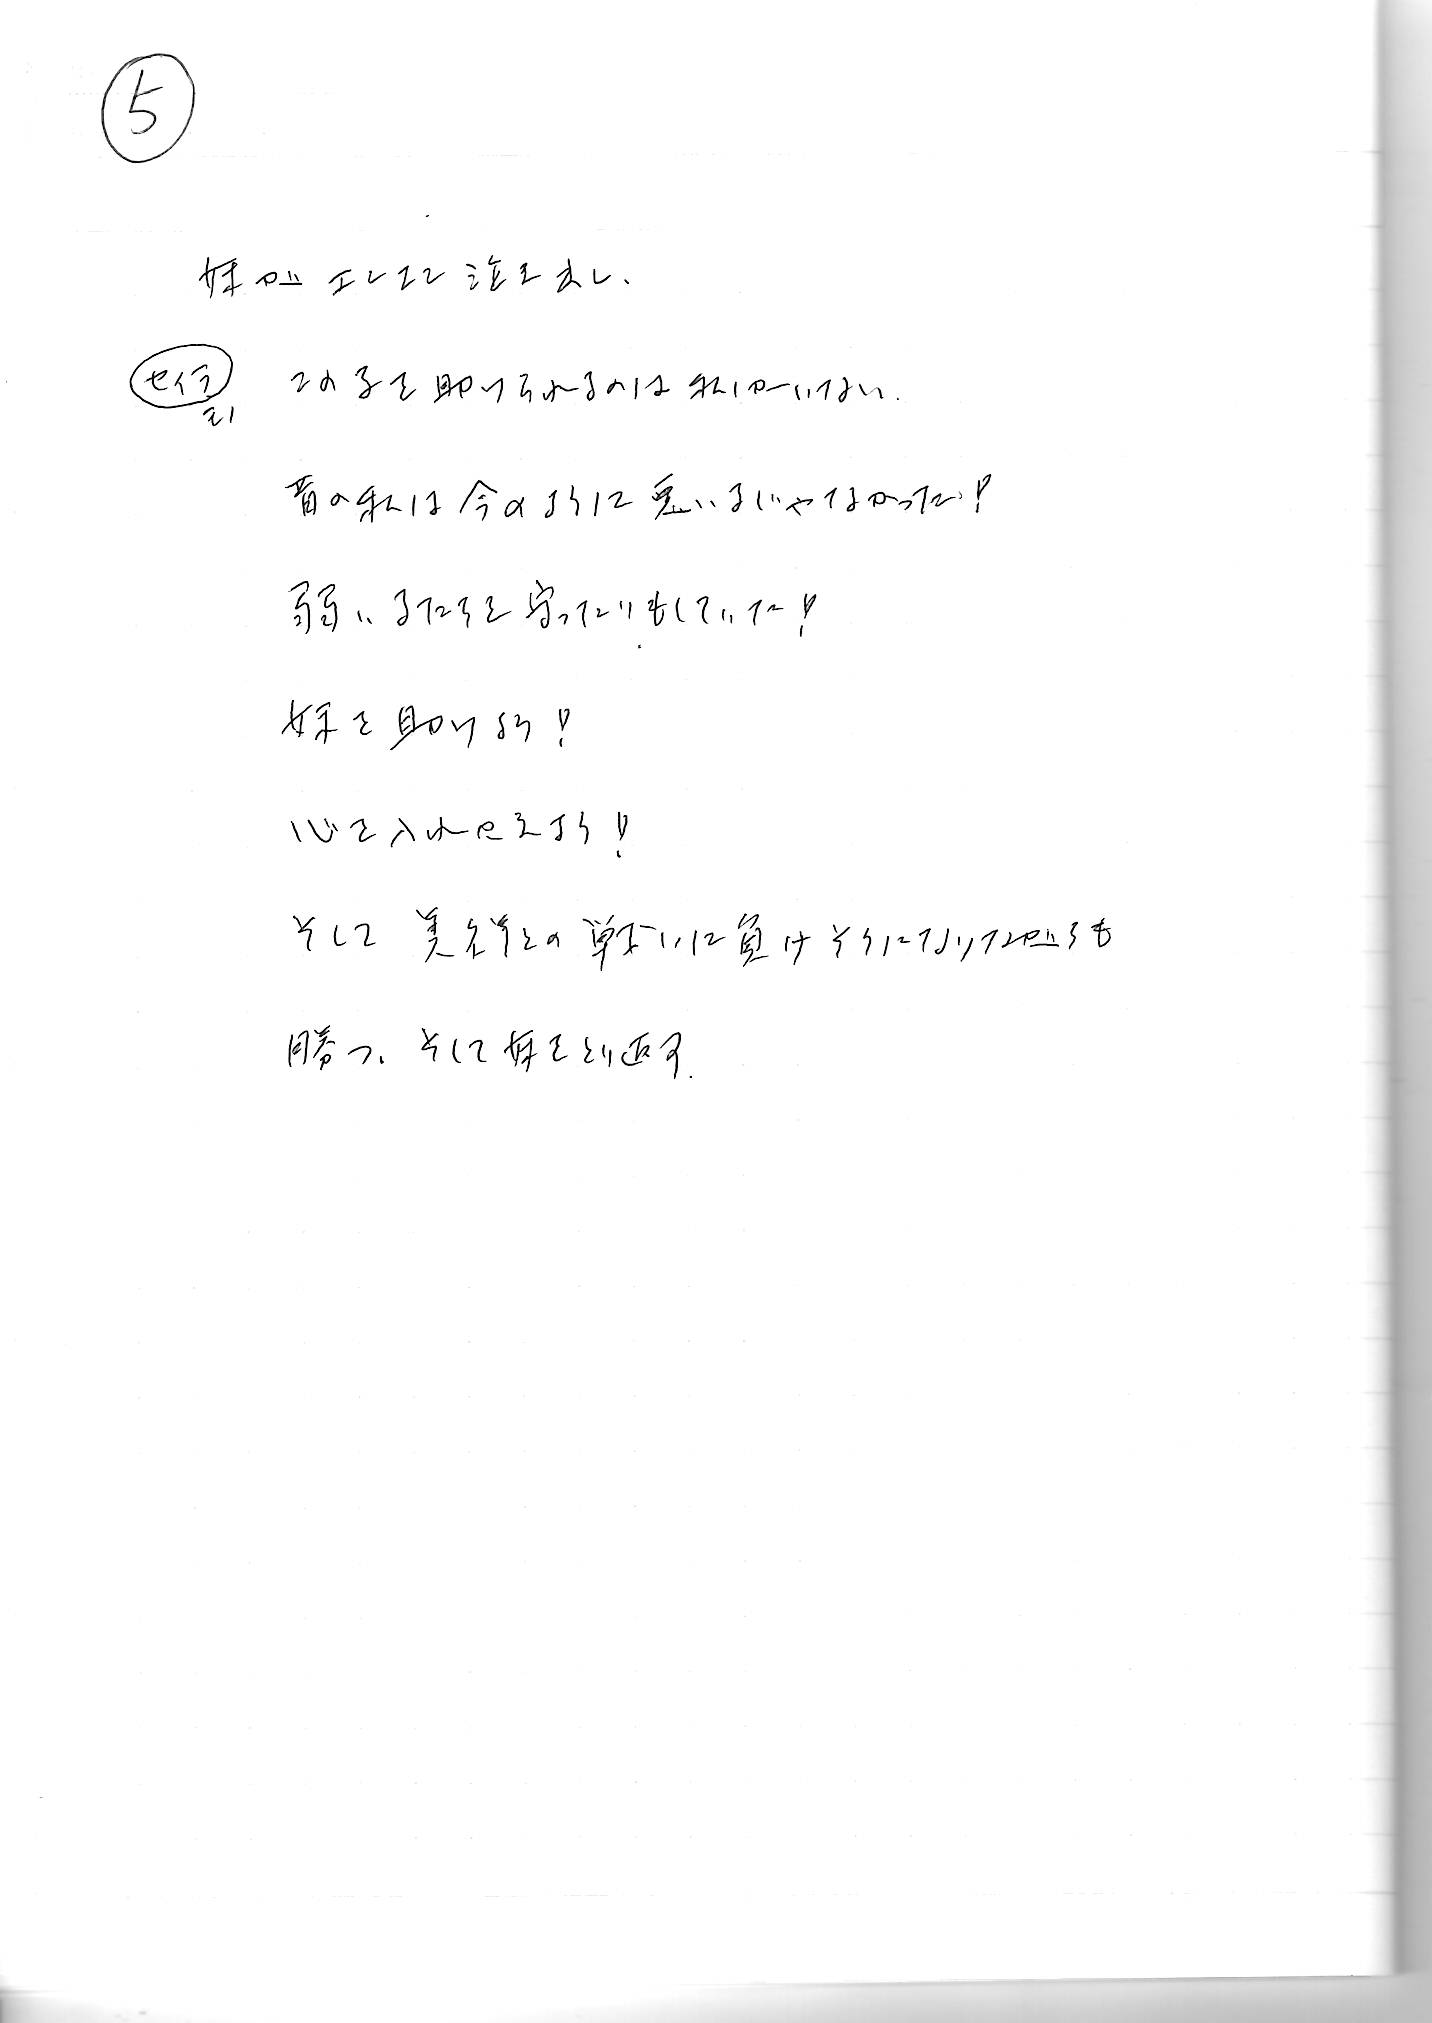 ⑤
妹がエンエン泣き出し、
セイラ この子を助けられるのは私しかいない。
昔の私は今のように悪い子じゃなかった!
弱い子たちを守ったりもしていた!
妹を助けよう!
心を入れかえよう!
そして との戦いに負けそうになりながらも
勝つ、そして妹をとり返す。